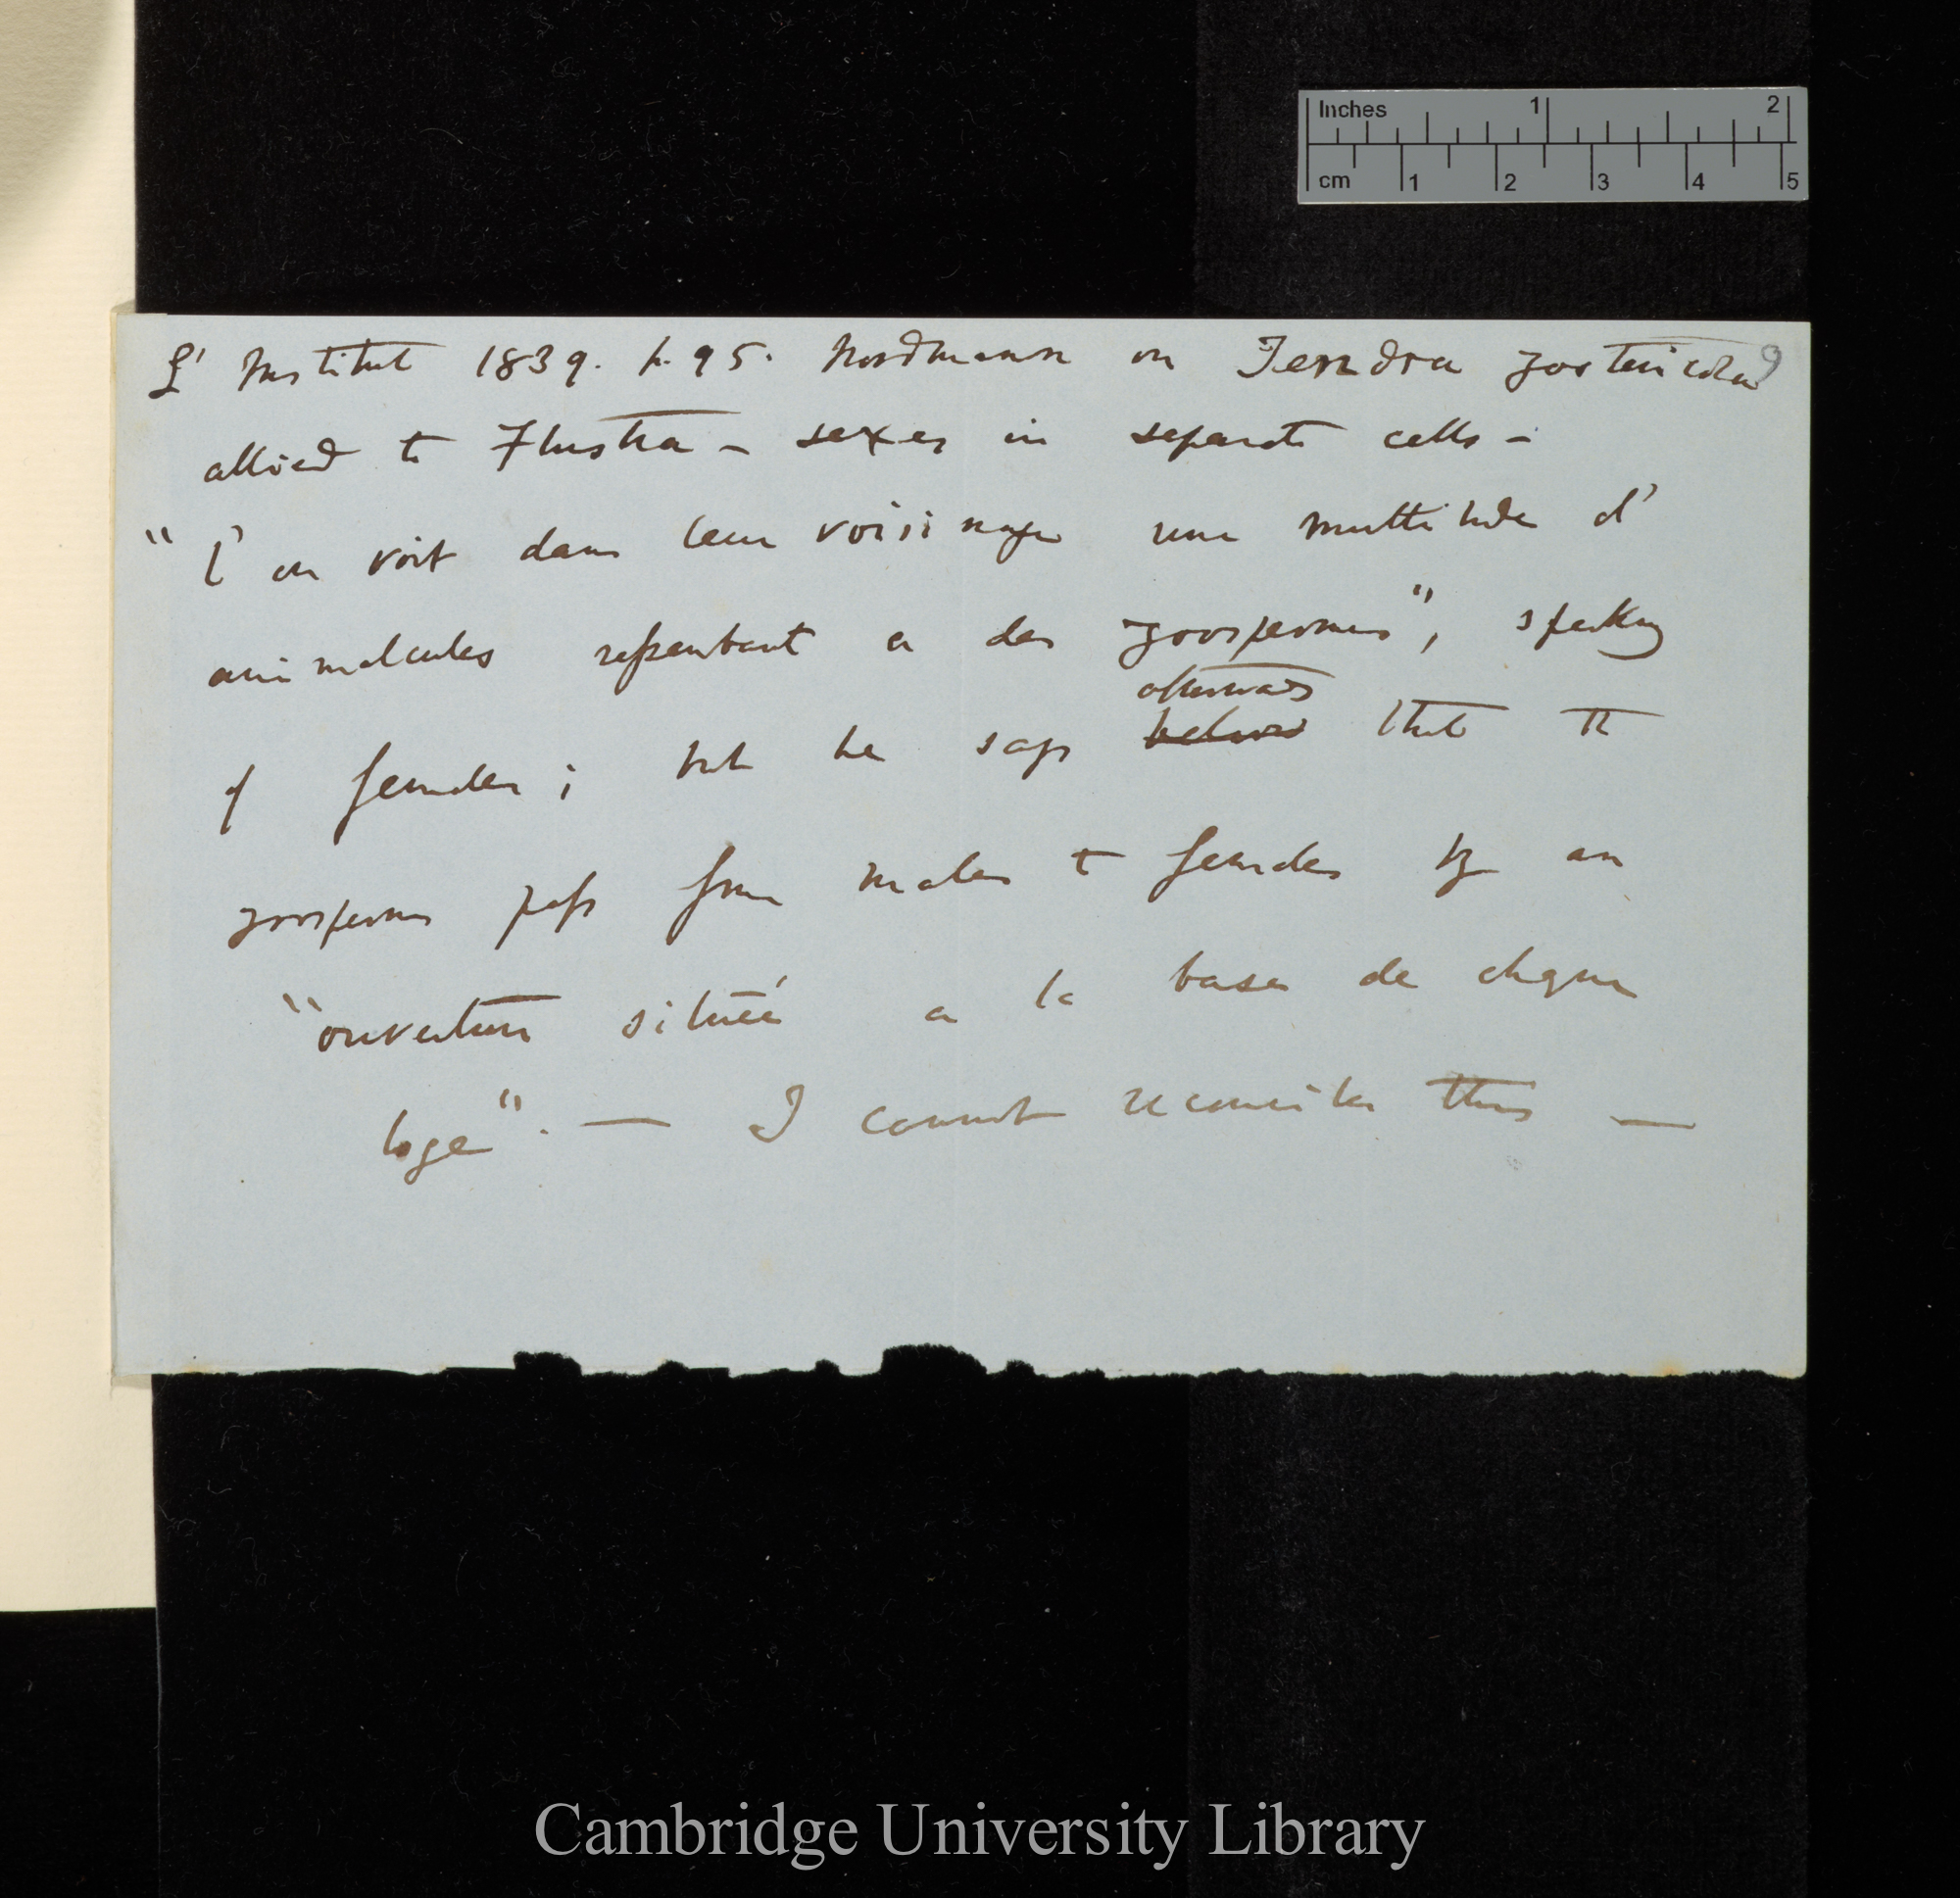 Inches 1 2
cm 1 2 3 4 5
9
L' Institut 1839. p. 95. Nordmann on Tendra zostericola
allied to Flustra – sexes in separate cells –
"l'on voit dans leur voisinage une multitude d'
animalcules ressenbant a des zoospermes", speaking
of females; but he says
afterwards
below that the
zoosperms pass from males to females by an
"ouverture située a la base de chaque
loge". — I cannot reconcile this —
Cambridge University Library